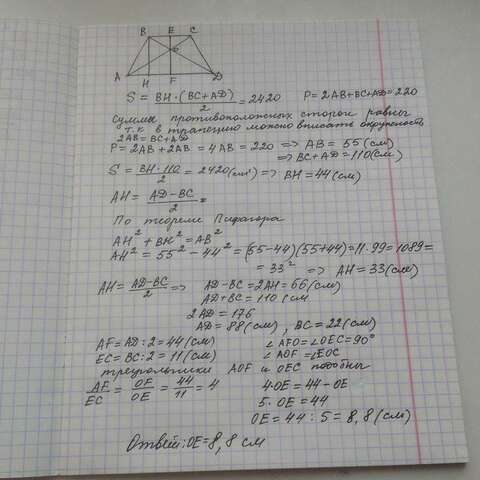 B E C
O
A H F D
S = BH·(BC+AD)/2 = 2420 P = 2AB+BC+AD = 220
Суммы противоположных сторон равны
т.к в трапецию можно вписать окружность
2AB = BC+AD
P = 2AB + 2AB = 4AB = 220 ⇒ AB = 55 (см)
⇒ BC+AD = 110 (см)
S = BH·110/2 = 2420 (см²) ⇒ BH = 44 (см)
AH = AD-BC/2 =
По теореме Пифагора
AH² + BH² = AB²
AH² = 55² - 44² = (55-44)(55+44) = 11·99 = 1089 =
= 33² ⇒ AH = 33 (см)
AH = AD-BC/2 ⇒ AD-BC = 2AH = 66 (см)
AD+BC = 110 см
2AD = 176
AD = 88 (см), BC = 22 (см)
AF = AD:2 = 44 (см) ∠AFO = ∠OEC = 90°
EC = BC:2 = 11 (см) ∠AOF = ∠EOC
треугольники AOF и OEC подобны
AF/EC = OF/OE = 44/11 = 4 4·OE = 44-OE
5·OE = 44
OE = 44:5 = 8,8 (см)
Ответ: OE = 8,8 см